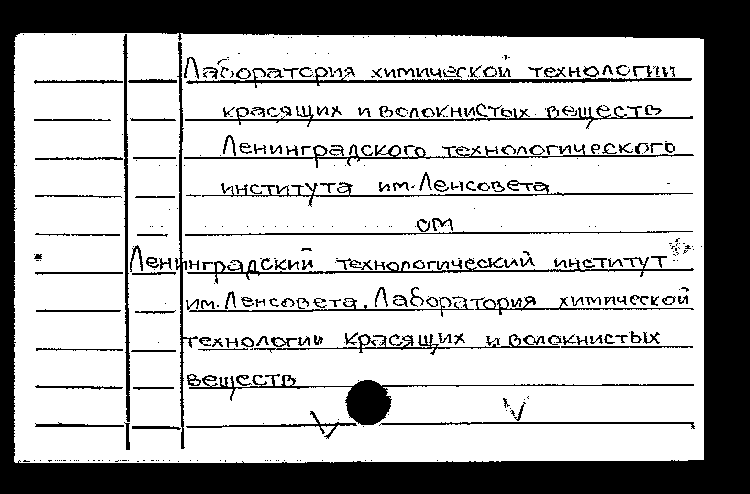 Лаборатория химической технологии
красящих и волокнистых веществ
Ленинградского технологического
института им. Ленсовета
см
Ленинградский технологический институт
им. Ленсовета. Лаборатория химической
технологии красящих и волокнистых
веществ